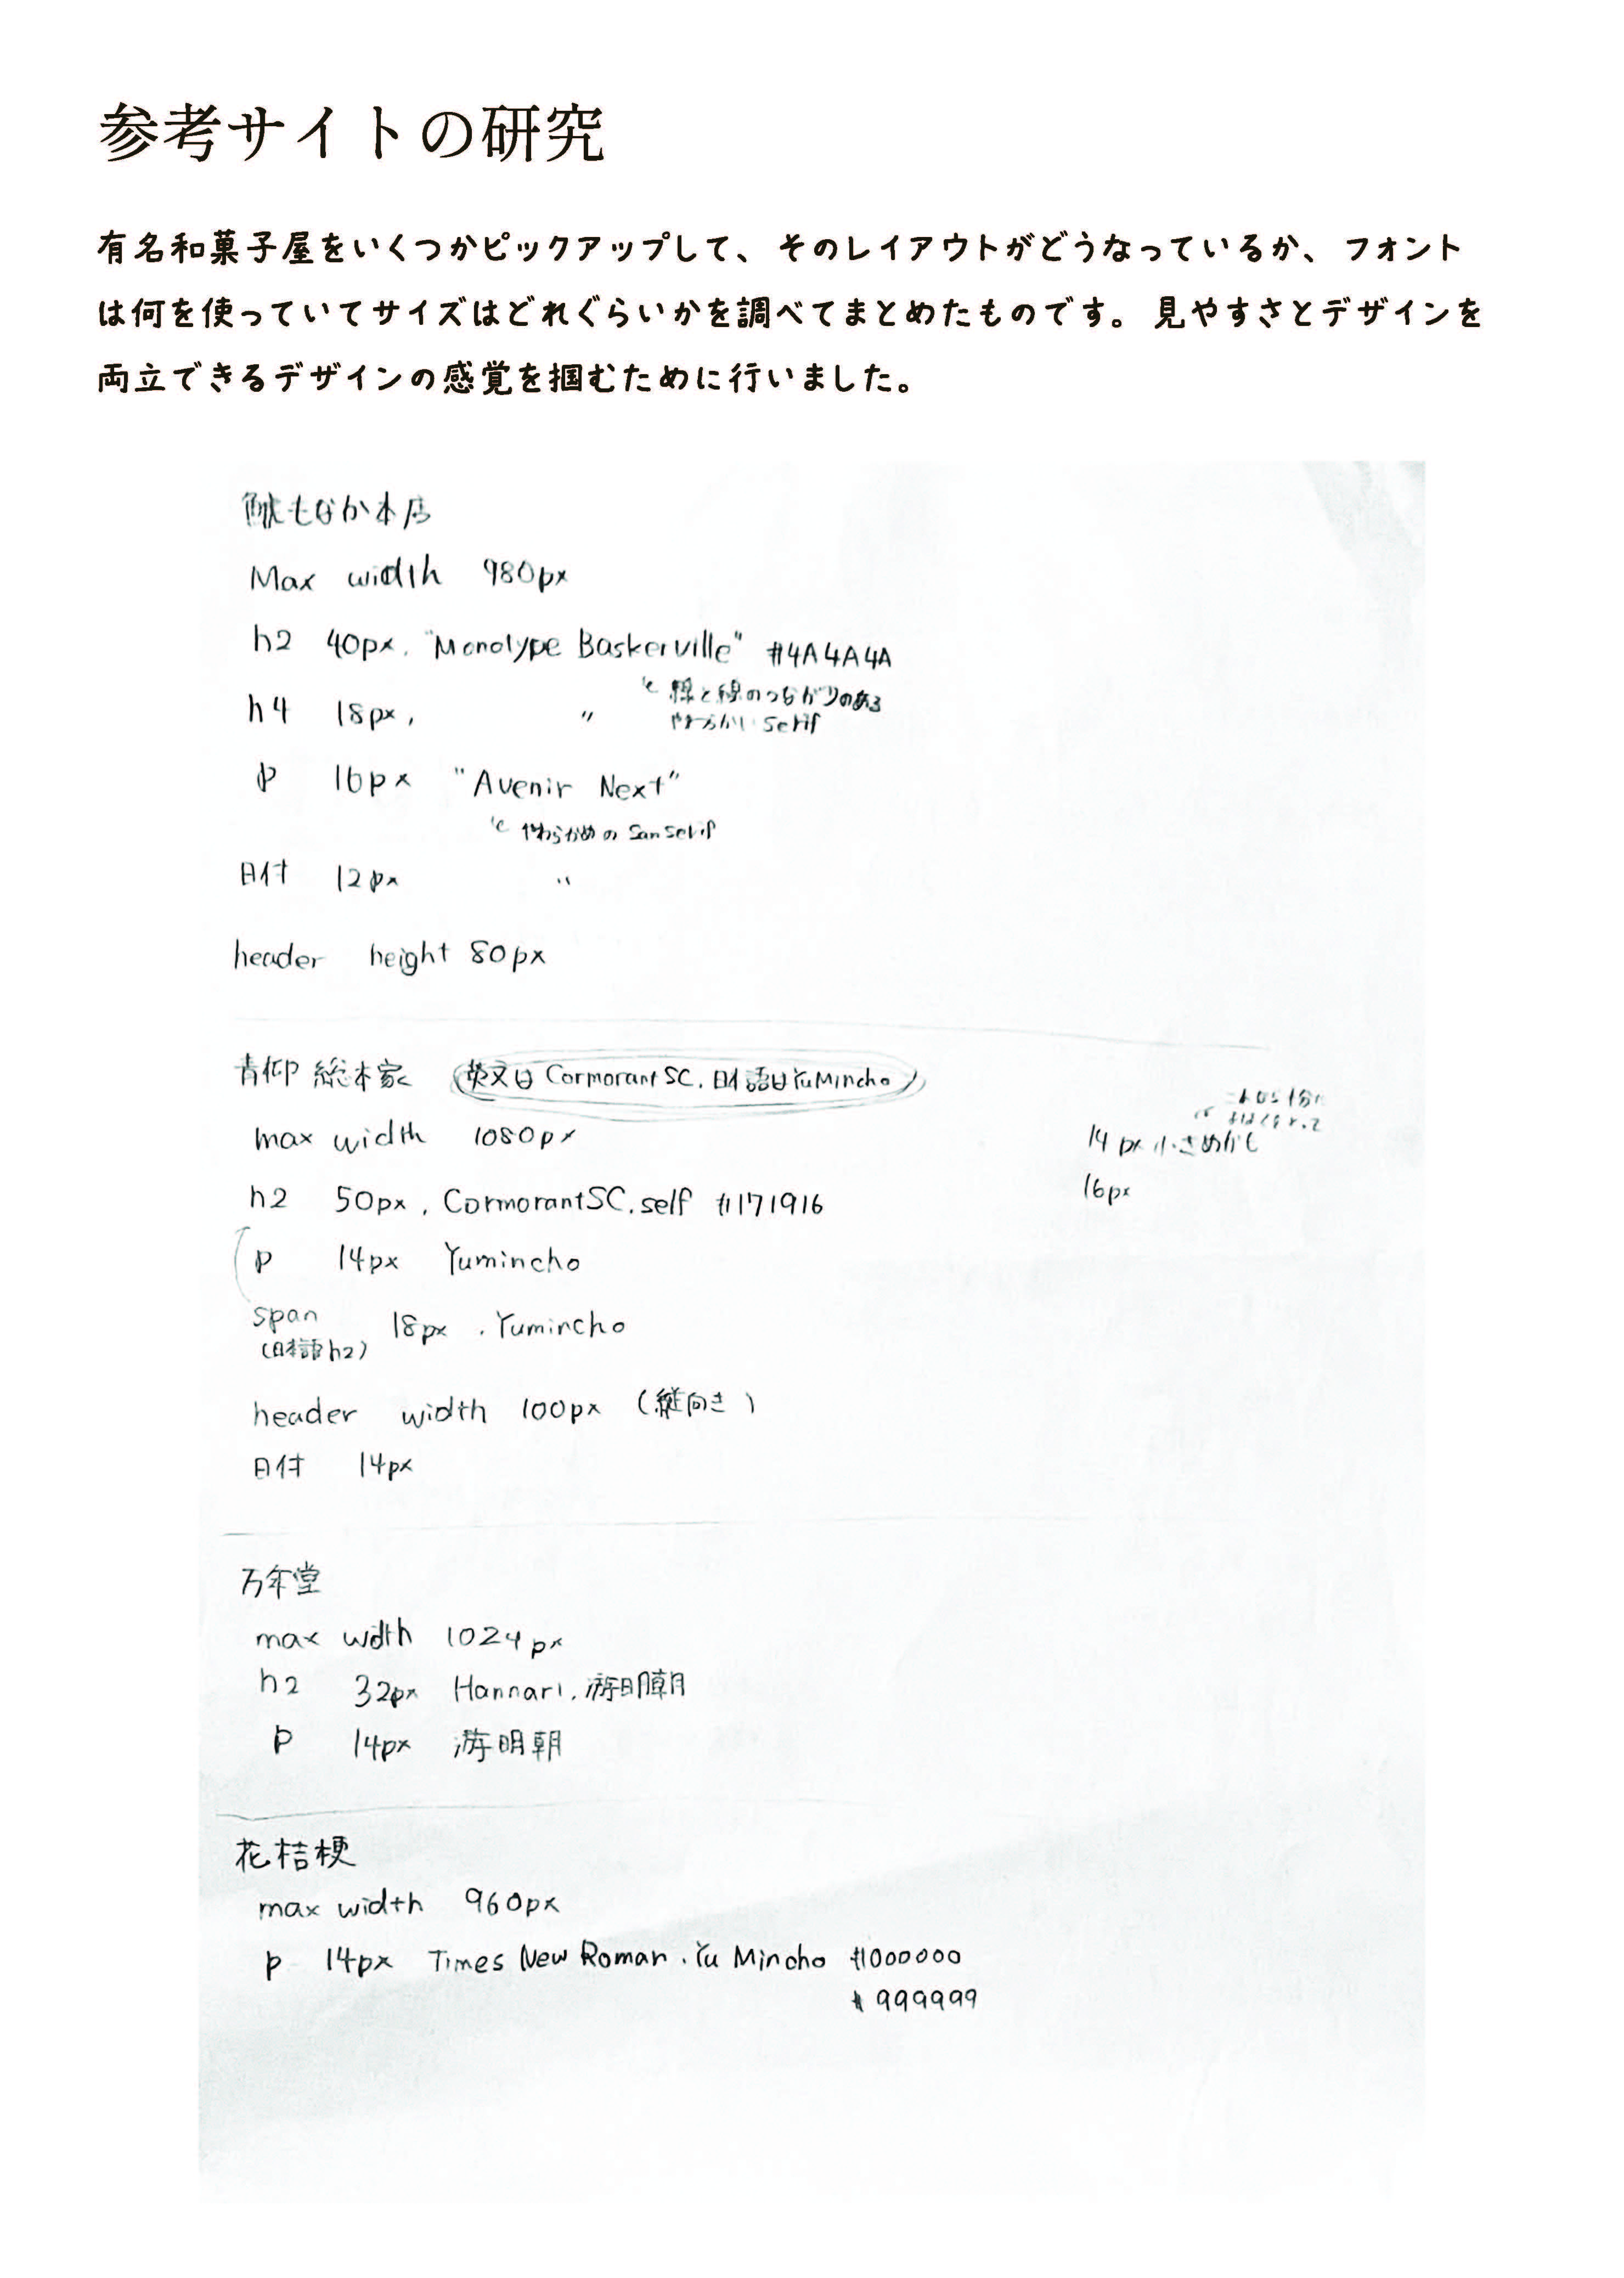 参考サイトの研究
有名和菓子屋をいくつかピックアップして、そのレイアウトがどうなっているか、フォント
は何を使っていてサイズはどれぐらいかを調べてまとめたものです。見やすさとデザインを
両立できるデザインの感覚を掴むために行いました。
もなか本店
Max width 980px
h2 40px. "Monotype Baskerville" #4A4A4A
線と線のつながりのある
やわらかい serif
h4 18px, 〃
p 16px "Avenir Next"
やわらかめの sanserif
日付 12px 〃
header height 80px
総本家 (英文は Cormorant SC. 日本語は YuMincho)
max width 1080px
14px 小さめかも
16px
h2 50px, CormorantSC.self #171916
p 14px Yumincho
span 18px . Yumincho
(日本語 h2)
header width 100px (縦向き)
日付 14px
万年堂
max wdth 1024px
h2 32px Hannari. 游明朝
p 14px 游明朝
花桔梗
max width 960px
p 14px Times New Roman . Yu Mincho #000000
# 999999